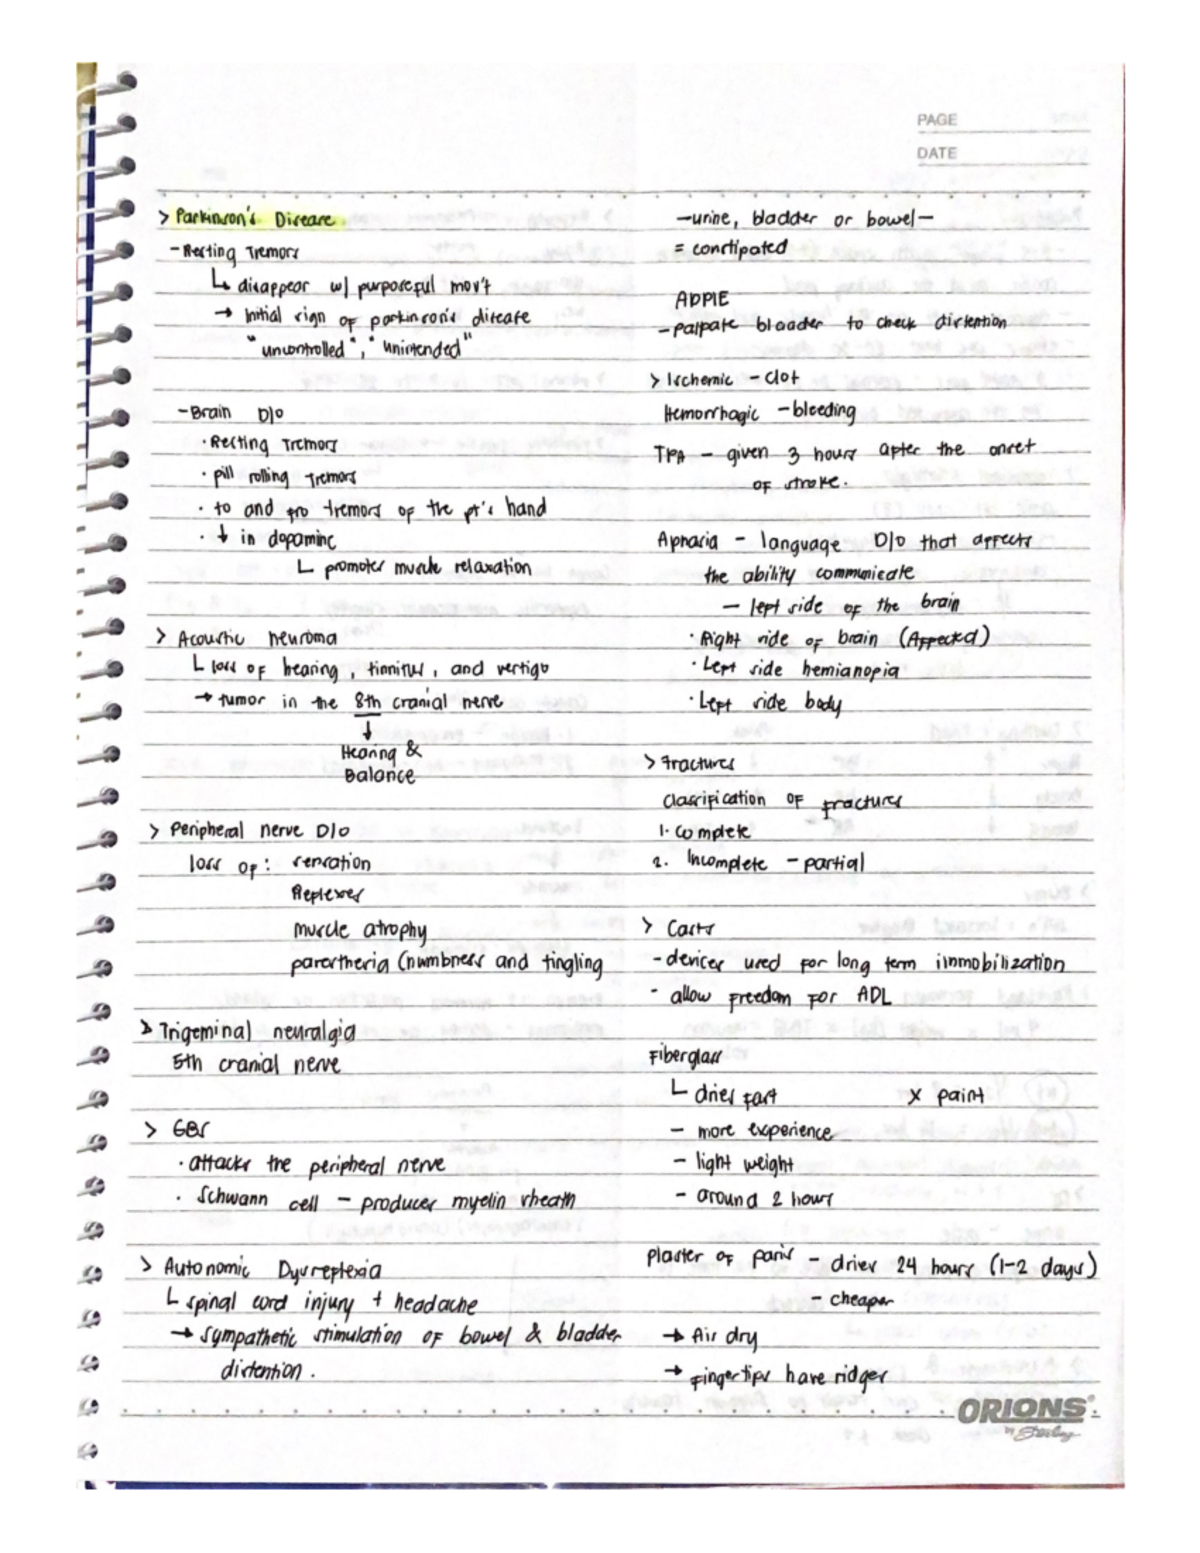 PAGE
DATE
> Parkinson's Disease
- Resting Tremors
↳ disappear w/ purposeful mov't
→ Initial sign of parkinson's disease
"uncontrolled", "unintended"
- Brain D/o
· Resting Tremors
· pill rolling Tremors
· to and fro tremors of the pt's hand
· ↓ in dopamine
↳ promotes muscle relaxation
> Acoustic neuroma
↳ loss of hearing, tinnitus, and vertigo
→ tumor in the 8th cranial nerve
↓
Hearing &
Balance
> Peripheral nerve D/o
loss of: sensation
Reflexes
muscle atrophy
paresthesia (numbness and tingling
> Trigeminal neuralgia
5th cranial nerve
> GBS
· attacks the peripheral nerve
· Schwann cell - produces myelin sheath
> Autonomic Dysreflexia
↳ spinal cord injury + headache
→ sympathetic stimulation of bowel & bladder
distention.
- urine, bladder or bowel -
= constipated
ADPIE
- palpate bladder to check distention
> Ischemic - clot
Hemorrhagic - bleeding
TPA - given 3 hours after the onset
of stroke.
Aphasia - language D/o that affects
the ability communicate
- left side of the brain
· Right side of brain (Affected)
· Left side hemianopia
· Left side body
> Fractures
Classification of fractures
1. Complete
2. Incomplete - partial
> Casts
- devices used for long term immobilization
- allow freedom for ADL
Fiberglass
↳ dries fast x paint
- more experience
- light weight
- around 2 hours
Plaster of paris - dries 24 hours (1-2 days)
- cheaper
→ Air dry
→ fingertips have ridges
ORIONS
by Sterling